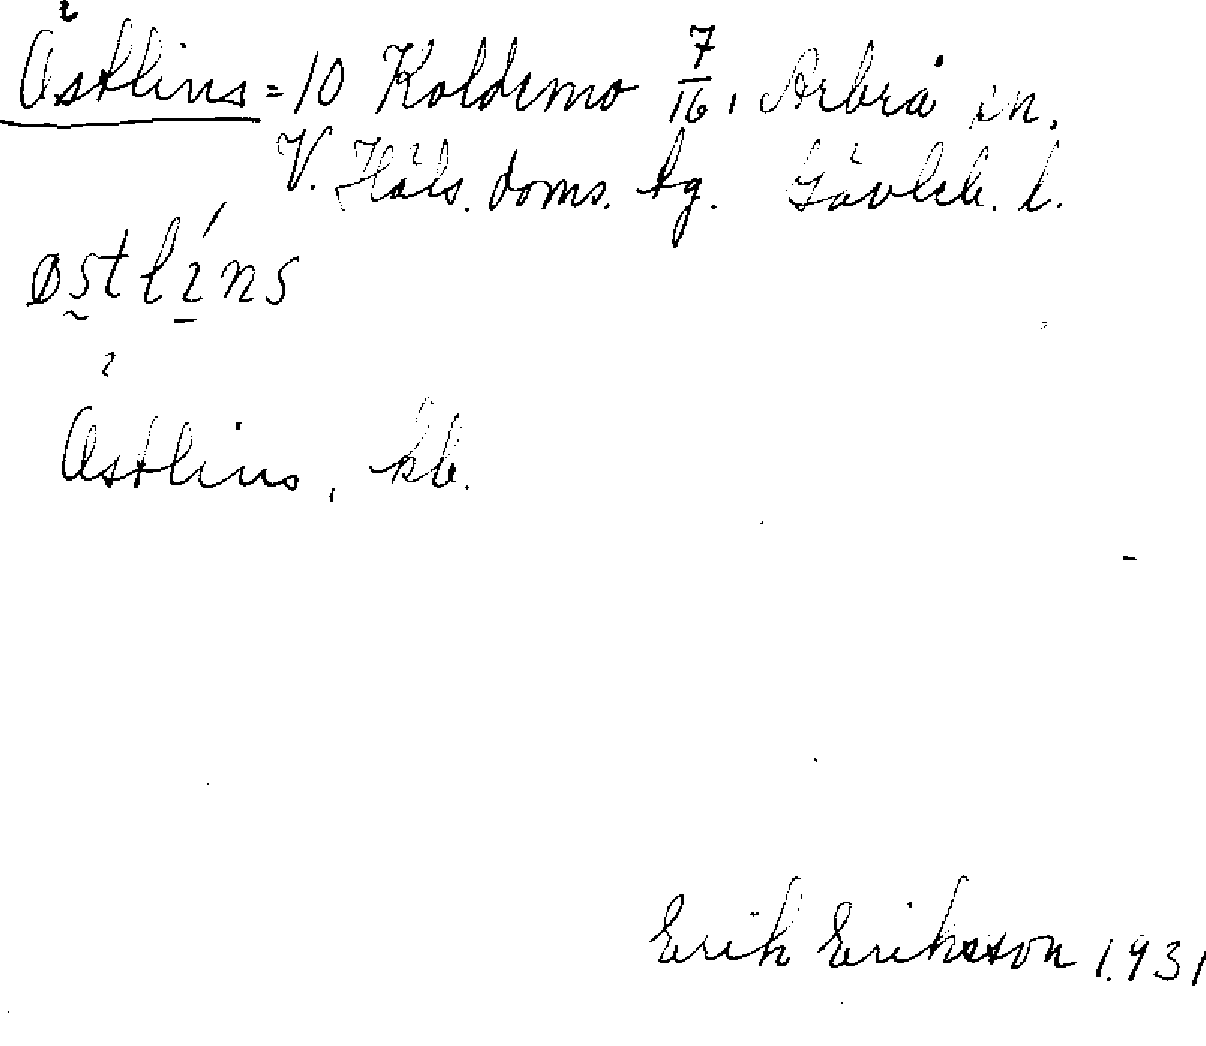 Östlins = 10 Koldemo 7/16, Arbrå sn.
V. Häls. doms. tg. Gävleb. l.
østlíns
Östlins, kb.
Erik Eriksson 1931